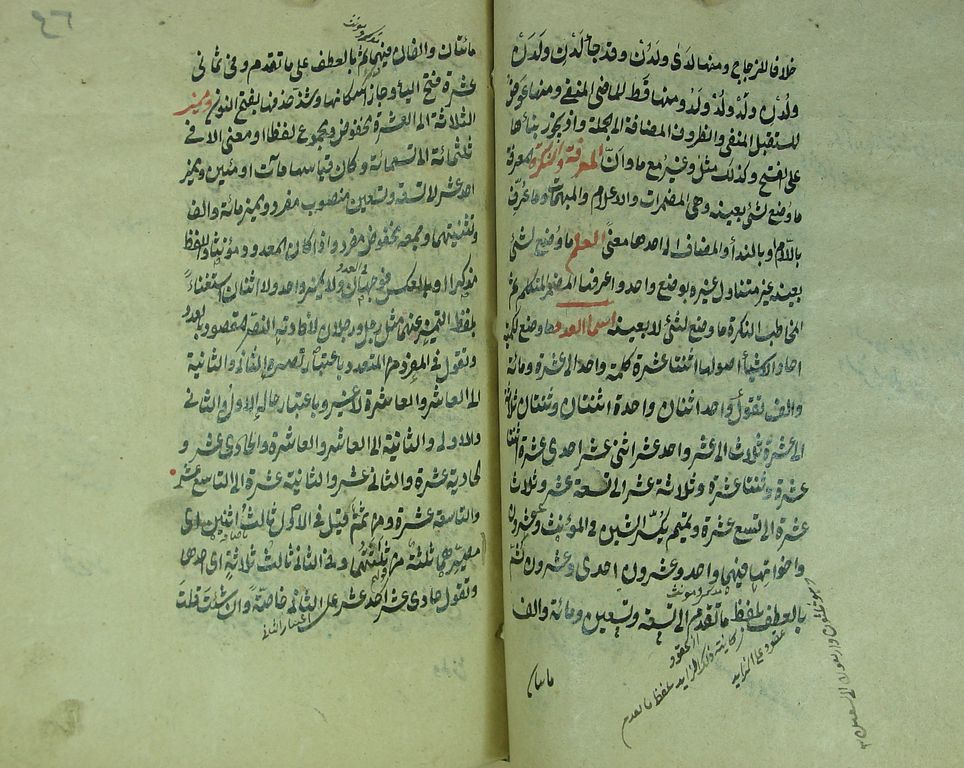 خلافا للزجاج ومنها لدى ولدن وقد جا لدن ولدن
ولدن ولد ولد ولد ومنها قط للماضى المنفى ومنها عوض
للمستقبل المنفى والظروف المضافة الى الجملة واذ يجوز بناءها
على الفتح وكذلك مثل وغير مع ما وان المعرفة والنكرة المعرفة
ما وضع لشئ بعينه وهى المضمرات والاعلام والمبهمات وما عرف
باللام وبالندا والمضاف الى احدها معنى العلم ما وضع لشئ
بعينه غير متناول غيره بوضع واحد واعرفها المضمر المتكلم ثم
المخاطب النكرة ما وضع لشئ لا بعينه اسماء العدد ما وضع لكمية
احاد الاشياء اصولها اثنتا عشرة كلمة واحد الى عشرة ومائة
والف تقول واحد اثنان واحدة اثنتان وثنتان ثلاثة
الى عشرة ثلاث الى عشر واحد عشر اثنى عشر احدى عشرة اثنتا
عشرة وثنتا عشرة وثلاثة عشر الى تسعة عشر وثلاث
عشرة الى تسع عشرة وتميم يكسر الشين فى المؤنث وعشرون
واخواتها فيهما واحد وعشرون احدى وعشرون ثم
بالعطف بلفظ ما تقدم الى تسعة وتسعين ومائة والف
مائتان
مائتان والفان فيهما ثم بالعطف على ما تقدم وفى ثمانى
عشرة فتح الياء وجاز اسكانها وشذ حذفها بفتح النون ومميز
الثلاثة الى العشرة مخفوض ومجموع لفظا او معنى الا فى
ثلثمائة الى تسعمائة وكان قياسها مآت او مئين ومميز
احد عشر لا تسعة وتسعين منصوب مفرد ومميز مائة والف
وتثنيتهما وجمعه مخفوض مفرد واذا كان المعدود مؤنثا واللفظ
مذكرا او بالعكس فوجهان ولا يميز واحد ولا اثنان استغناء
بلفظ التمييز عنهما مثل رجل ورجلان لافادته النص المقصود بالعدد
وتقول فى المفرد من المتعدد باعتبار تصييره الثانى والثانية
الى العاشر والعاشرة لا غير وباعتبار حاله الاول والثانى
والاولى والثانية الى العاشر والعاشرة والحادى عشر و
الحادية عشرة والثانى عشر والثانية عشرة الى التاسع عشر
والتاسعة عشرة ومن ثم قيل فى الاول ثالث اثنين اى
مصيرهما ثلثة من ثلثتهما وفى الثانى ثالث ثلاثة اى احدها
وتقول حادى عشر احد عشر على الثانى خاصة وان شئت قلت